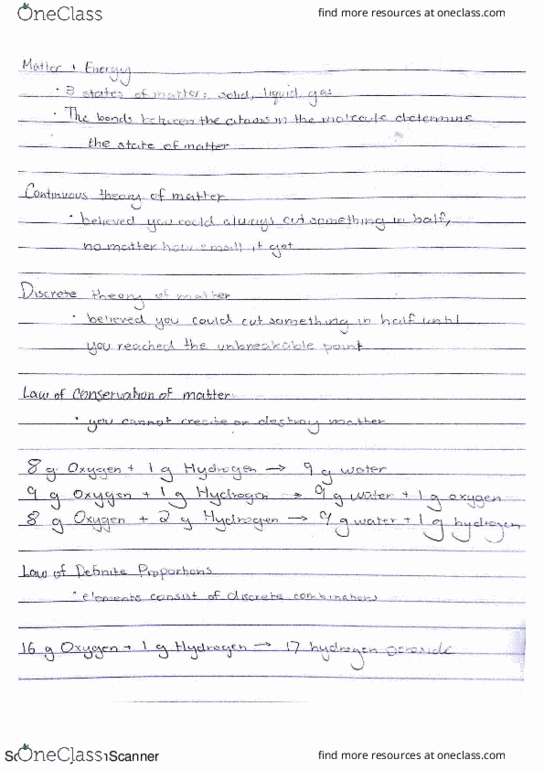 OneClass
find more resources at oneclass.com
Matter + Energy
· 3 states of matter: solid, liquid, gas
· The bonds between the atoms in the molecule determine
the state of matter
Continuous theory of matter
· believed you could always cut something in half,
no matter how small it got
Discrete theory of matter
· believed you could cut something in half until
you reached the unbreakable point
Law of Conservation of matter
· you cannot create or destroy matter
8 g Oxygen + 1 g Hydrogen → 9 g water
9 g Oxygen + 1 g Hydrogen → 9 g water + 1 g oxygen
8 g Oxygen + 2 g Hydrogen → 9 g water + 1 g hydrogen
Law of Definite Proportions
· elements consist of discrete combinations
16 g Oxygen + 1 g Hydrogen → 17 hydrogen peroxide
OneClass Scanner
find more resources at oneclass.com